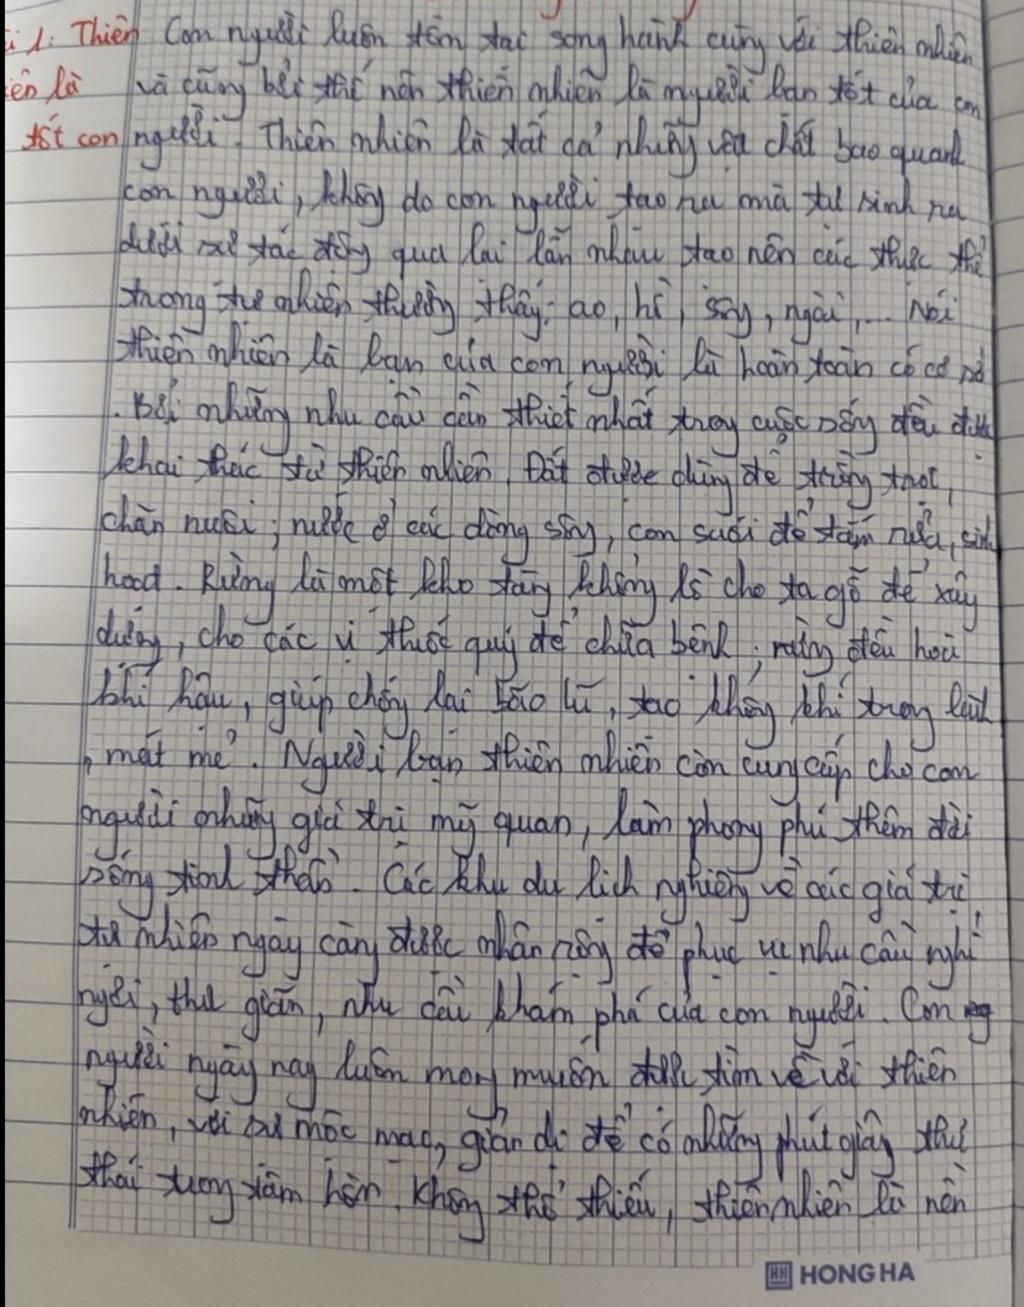 i 1: Thiên Con người luôn tồn tại song hành cùng với thiên nhiên
iên là và cũng bởi thế nên thiên nhiên là người bạn tốt của con
tốt con người. Thiên nhiên là tất cả những vật chất bao quanh
con người, không do con người tạo ra mà tự sinh ra
dưới sự tác động qua lại lẫn nhau tạo nên các thực thể
trong tự nhiên thường thấy: ao, hồ, sông, ngòi,... Nói
thiên nhiên là bạn của con người là hoàn toàn có cơ sở
. Bởi những nhu cầu cần thiết nhất trong cuộc sống đều được
khai thác từ thiên nhiên. Đất được dùng để trồng trọt,
chăn nuôi; nước ở các dòng sông, con suối để tắm rửa, sinh
hoạt. Rừng là một kho tàng khổng lồ cho ta gỗ để xây
dựng, cho các vị thuốc quý để chữa bệnh; rừng điều hoà
khí hậu, giúp chống lại bão lũ, tạo không khí trong lành
, mát mẻ. Người bạn thiên nhiên còn cung cấp cho con
người những giá trị mỹ quan, làm phong phú thêm đời
sống tinh thần. Các khu du lịch nghiêng về các giá trị
tự nhiên ngày càng được nhân rộng để phục vụ nhu cầu nghỉ
ngơi, thư giãn, nhu cầu khám phá của con người. Con
người ngày nay luôn mong muốn được tìm về với thiên
nhiên, với sự mộc mạc, giản dị để có những phút giây thư
thái trong tâm hồn. Không thể thiếu, thiên nhiên là nền
HONG HA